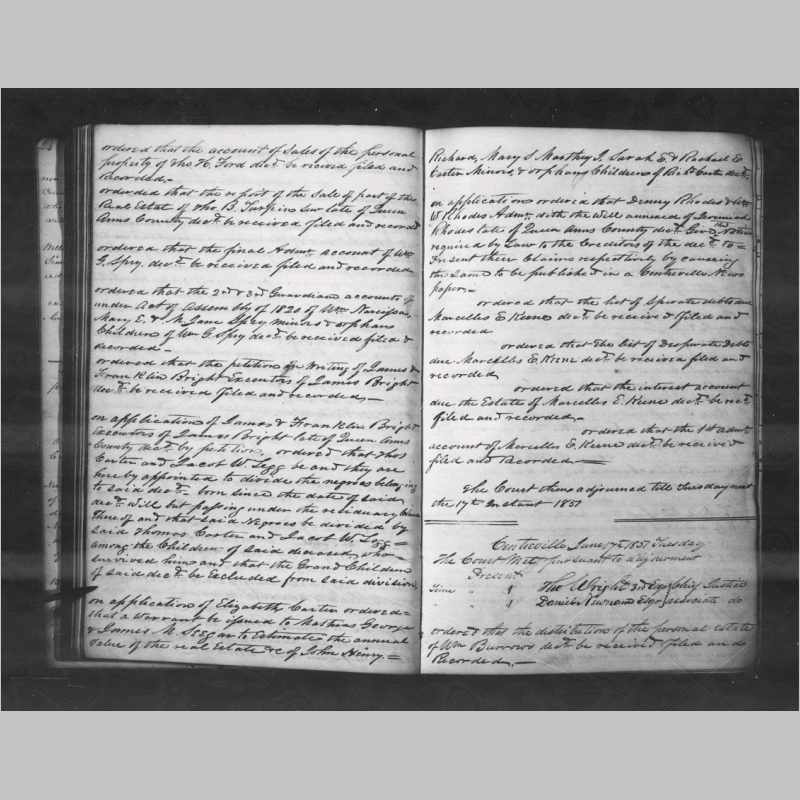 ordered that the account of sales of the personal
property of Tho H. Ford decd. be received filed and
recorded.-
ordered that the report of the sale of part of the
Real Estate of Tho. B. Turpins Sur late of Queen
Anns County decd. be received filed and record
ordered that the final Admr. account of Wm
G. Spry decd. be received filed and recorded
ordered that the 2nd & 3rd Guardian accounts of
under Act of Assembly of 1820 of Wm Narcissa,
Mary E. & M. Jane Spry minors & orphans
Children of Wm G. Spry decd. be received filed &
recorded.-
ordered that the petition in Writing of James &
Franklin Bright Excutors of James Bright
decd. be received filed and recorded.-
on application of James & Franklin Bright
Excutors of James Bright late of Queen Anns
County decd. by petition, ordered that Thos
Carter and Jacob W. Legg be and they are
hereby appointed to divide the negroes belonging
to said decd. born since the date of said
decd. Will but passing under the residuary Clause
thereof and that said Negroes be divided by
said Thomas Carter and Jacob W. Legg
among the Children of said deceased who
survived him and that the Grand Children
of said decd. be Excluded from said division
on application of Elizabeth Carter ordered
that a Warrant be issued to Mathias George
& James M. to Estimate the annual
value of the real Estate &c of John Henry. =
Richard, Mary S Marthey J. Sarah E. & Rachael E
Carter Minors, & orphans Children of Rid. Carter decd.
on application ordered that Denny Rhodes & Wm
W. Rhodes Admr. with the Will annexed of Jeremiah
Rhodes late of Queen Anns County decd. Give the Notice
required by Law to the Creditors of the decd. to
Present their Claims respectively by causing
the same to be published in a Centreville News
paper.-
ordered that the list of Sperate debts due
Marcellus E. Keene decd. be received filed and
recorded
ordered that the list of Desperate Debts
due Marcellus E. Keene decd. be received filed and
recorded
ordered that the interest account
due the Estate of Marcellus E. Keene decd. be recd.
filed and recorded.-
ordered that the 1st Admr.
account of Marcellus E. Keene decd. be received
filed and Recorded.-
The Court then adjourned till Tuesday next
the 17th Instant 1851
Centreville June 17th 1851 Tuesday
The Court Met pursuant to adjournment
Present
Tho Wright 3rd Esqr Chief Justice
Daniel Newnam Esqr associate do
ordered that the distribution of the personal estate
of Wm Burrows decd. be received filed and
Recorded.-